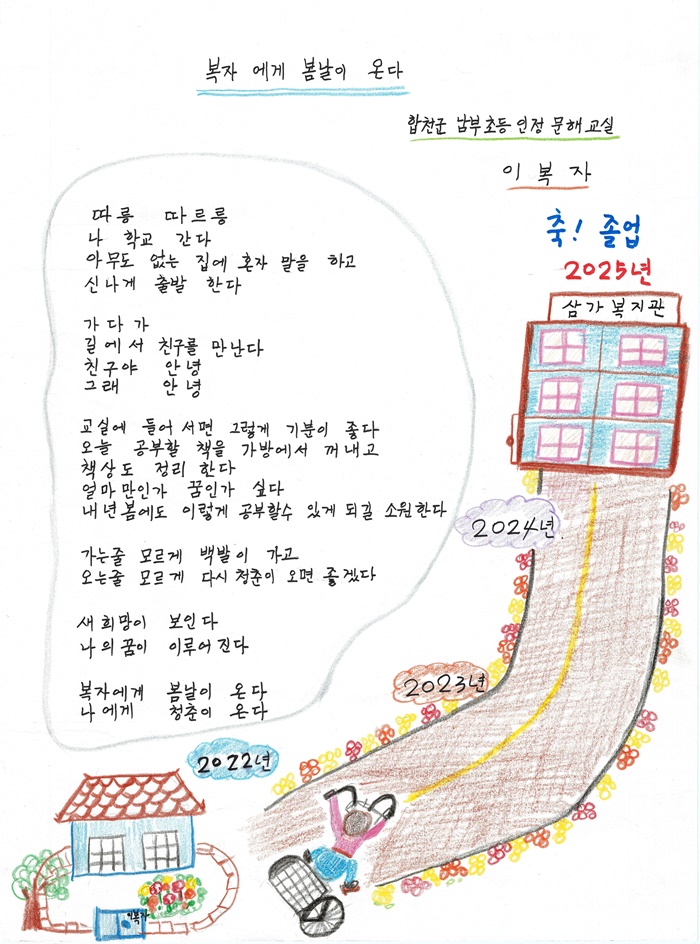 복자 에게 봄날이 온다
합천군 남부초등 인정 문해교실
이 복 자
따릉 따르릉
나 학교 간다
아무도 없는 집에 혼자 말을 하고
신나게 출발 한다
가다가
길에서 친구를 만난다
친구야 안녕
그래 안녕
교실에 들어 서면 그렇게 기분이 좋다
오늘 공부할 책을 가방에서 꺼내고
책상도 정리 한다
얼마만인가 꿈인가 싶다
내년봄에도 이렇게 공부할수 있게 되길 소원한다
가는줄 모르게 백발이 가고
오는줄 모르게 다시 청춘이 오면 좋겠다
새희망이 보인다
나의꿈이 이루어진다
복자에게 봄날이 온다
나에게 청춘이 온다
축! 졸업
2025년
삼가복지관
2024년
2023년
2022년
이복자